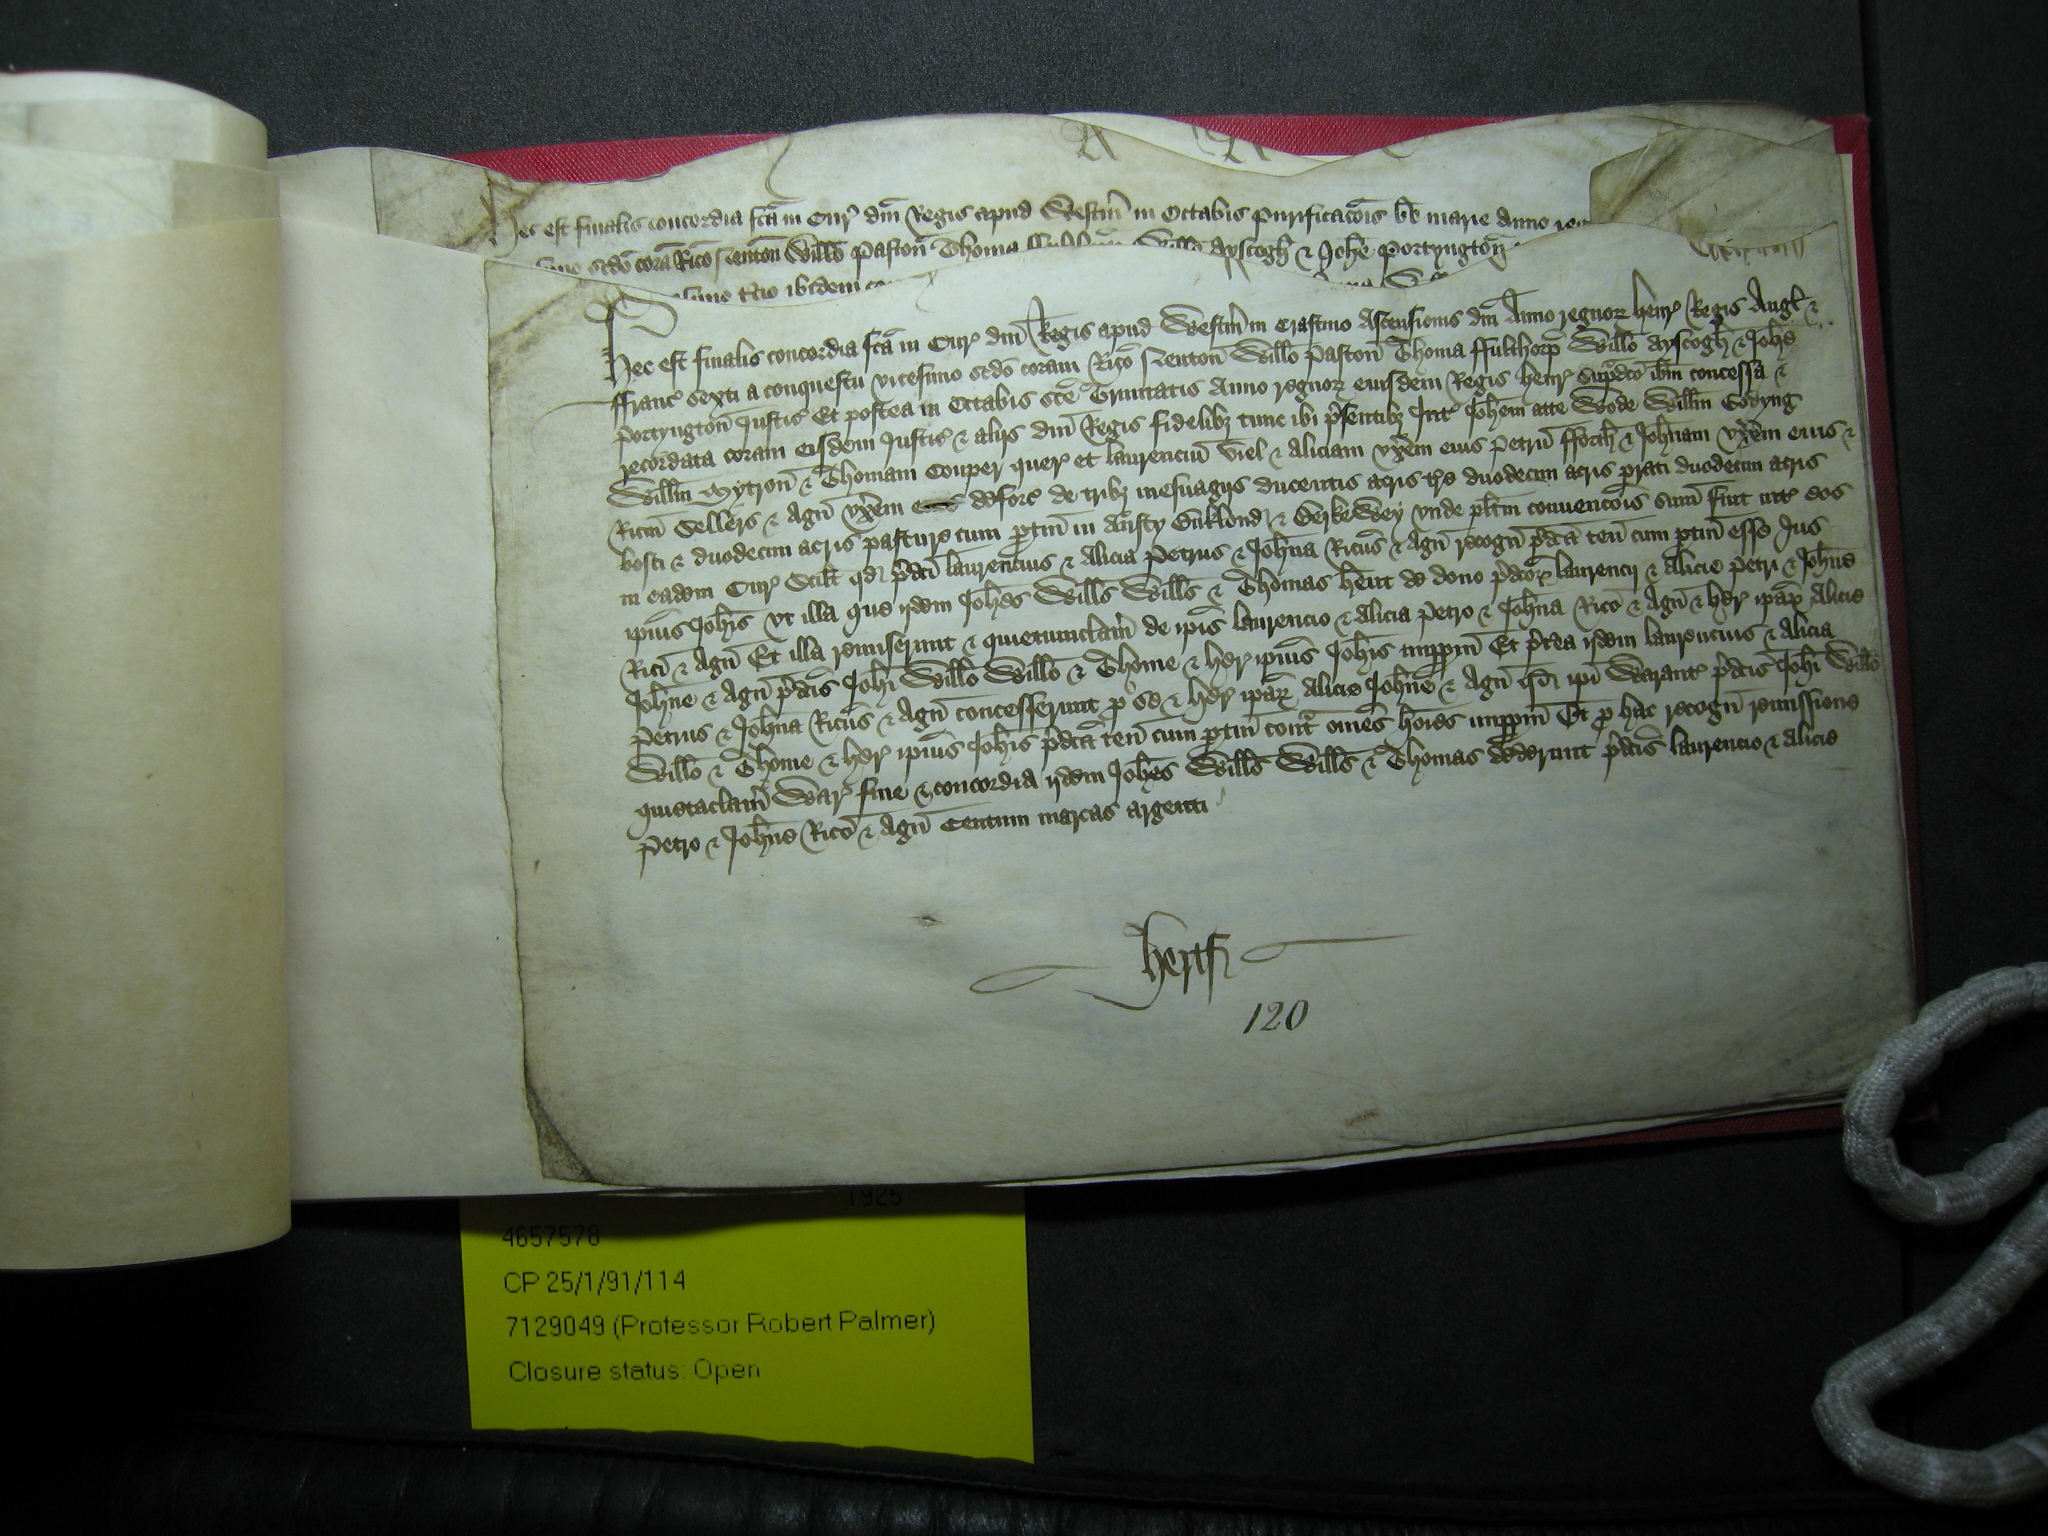 A A
Hec est finalis concordia fcã in Cur̾ dñi Regis apud Westm̃ in Octabis purificacõis bẽ marie Anno
scdõ corã Rico Neuton Willo Paston Thoma Willo Ayscogh & Johe Portyngton
tcio ibidem
Hec est finalis concordia fcã in Cur̾ dñi Regis apud Westm̃ in Crastino Ascensionis dñi Anno regnoꝝ henr̾ Regis Angl̾ &
ffranc̾ sexti a conquestu vicesimo scdõ coram Rico Neuton Willo Paston Thoma ffulthorp̾ Willo Ayscogh & Johe
Portyngton Justic̾ Et postea in Octabis scẽ Trinitatis Anno regnoꝝ eiusdem Regis henr̾ sup̾dco ib̃m concessa &
recordata coram eisdem Justic̾ & alijs dñi Regis fidelibꝫ tunc ibi p̾sentibꝫ Int̾ Joh̃em atte Wode Will̃m Godyng
Will̃m Mytron & Thomam Couper quer̾ et laurenciũ Viel & Aliciam vx̾em eius Petrũ ffotch & Joh̃nam vx̾em eius &
Ricm̃ Sellers & Agñ vx̾em eius deforc̾ de tribꝫ mesuagijs ducentis acris t̾re duodecim acris prati duodecim acris
bosci & duodecim acris pasture cum ptiñ in Ansty Buklond & Berkewey vnde pl̾itm convencõis sum̃ fuit int̾ eos
in eadem Cur̾ Scil̾t qd̾ p̾dci laurencius & Alicia Petrus & Joh̃na Ric̃us & Agñ recogñ p̾dcã teñ cum ptiñ esse Jus
ip̃ius Joh̃is vt illa que ijdem Joh̃es Will̃s Will̃s & Thomas hẽnt de dono p̾dcoꝝ laurencij & Alicie Petri & Joh̃ne
Rici & Agñ Et illa remiserunt & quietumclam̾ de ip̃is laurencio & Alicia Petro & Joh̃na Rico & Agñ & her̾ ip̃aꝝ Alicie
Joh̃ne & Agñ p̾dcis Joh̃i Willo Willo & Thome & her̾ ip̃ius Joh̃is imp̾p̾m Et p̾tea ijdem laurencius & Alicia
Petrus & Joh̃na Ric̃us & Agñ concesserunt p̾ se & her̾ ip̃aꝝ Alicie Joh̃ne & Agñ qd̾ ip̃i Warant̾ p̾dcis Joh̃i Willo
Willo & Thome & her̾ ip̃ius Joh̃is p̾dcã teñ cum ptiñ cont̾ om̃es hoĩes imp̾p̾m Et p̾ hac recogñ remissione
quietaclam̾ War̾ fine & concordia ijdem Joh̃es Will̃s Will̃s & Thomas dederunt p̾dcis laurencio & Alicie
Petro & Joh̃ne Rico & Agñ Centum marcas argenti
hertf̾
120
1925
4657578
CP 25/1/91/114
7129049 (Professor Robert Palmer)
Closure status: Open